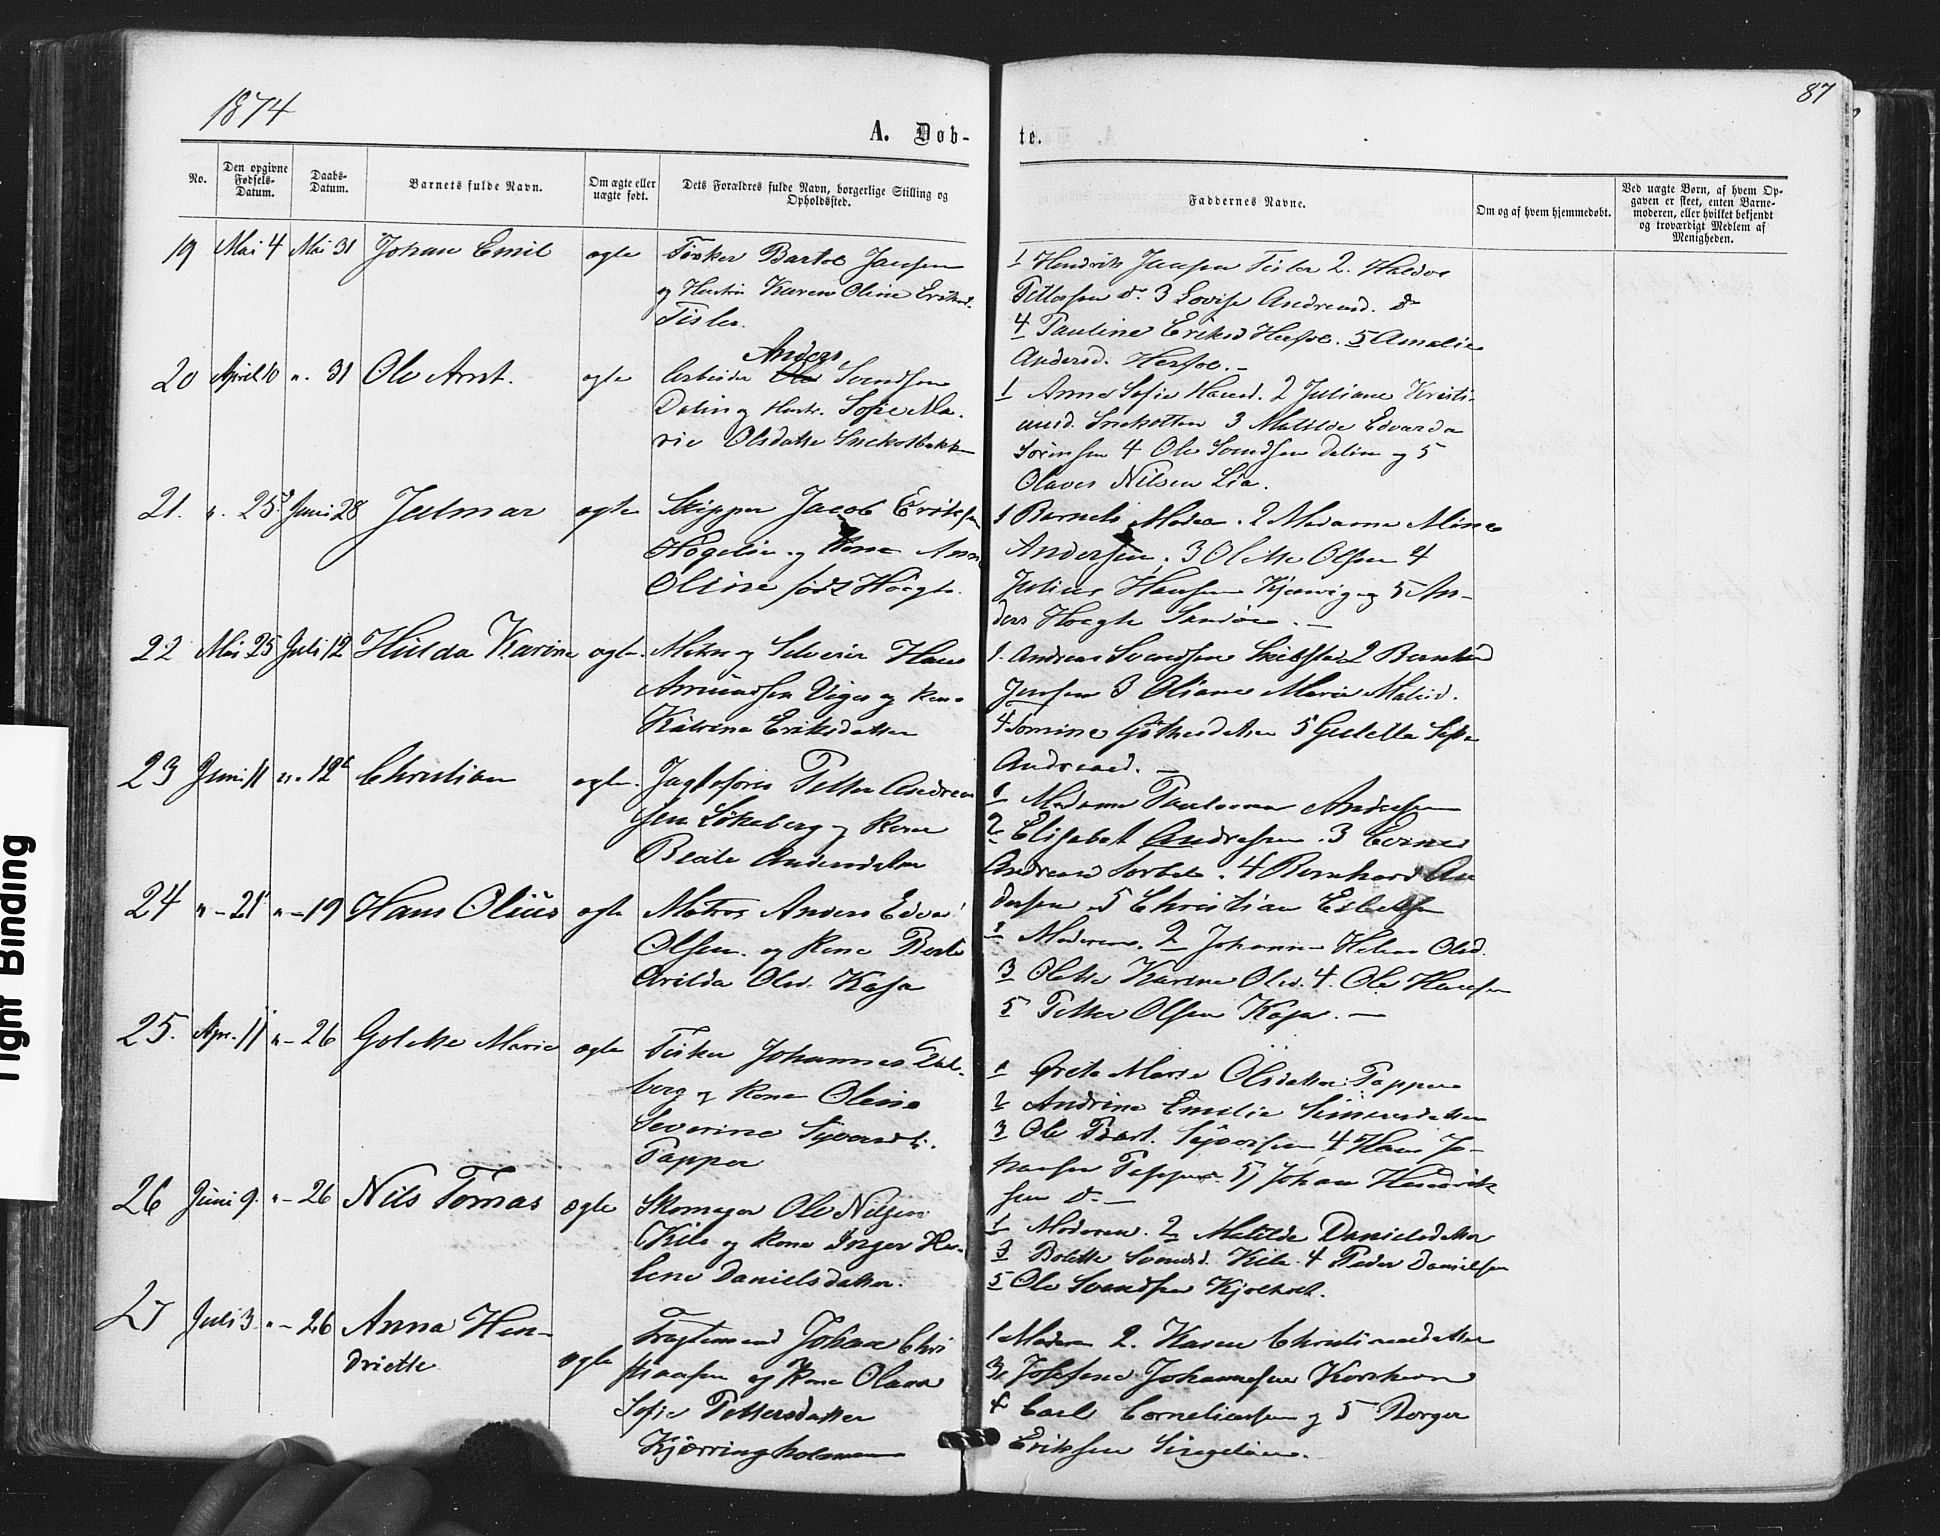 1874
87
A. Døb-
te.
No.
Den opgivne
Fødsels-
Datum.
Daabs-
Datum.
Barnets fulde Navn.
Om ægte eller
uægte født.
Dets Forældres fulde Navn, borgerlige Stilling og
Opholdssted.
Faddernes Navne.
Om og af hvem hjemmedøbt.
Ved uægte Børn, af hvem Op-
gaven er skeet, enten Barne-
moderen, eller hvilket bekjendt
og troværdigt Medlem af
Menigheden.
19 Mai 4 Mai 31 Johan Emil ægte
Fisker Bartol Jansen
og Hustru Karen Oline Eriksd.
Tisler.
1 Hendrik Jansen Tisler 2. Haldor
Pettersen do. 3 Lovise Andreasd. do
4 Pauline Eriksd 5 Amalie
Andersd.
20 April 10 ". 31 Ole Arnt. ægte
Anders
Arbeider Ole Svendsen
Dalin og Hustr. Sofie Ma-
rie Olsdatter
1 Anna Sofie Hansd. 2 Juliane Kristi-
ansd. 3 Matilde Edvarda
Sørensen 4 Ole Svendsen Dalin og 5
Olaves Nilsen Lia.
21. ". 25 Juni 28 Jalmar ægte
Skipper Jacob Eriksen
og Kone Anne
Oline født Høegh.
1 Barnets Moder. 2 Madame Mina
Andersen. 3 Olette Olsen 4
Julius Hansen og 5 An-
ders Hoegh Sandøe. —
22 Mai 25 Juli 12 Hilda Karine ægte
Hans
Amundsen og Kone
Katrine Eriksdatter
1. Andreas Svendsen 2 Bernhard
Jensen 3 Oliane Marie
4 5 Guletta Sofie
Andreasd. —
23 Juni 11 ". 12 Christian ægte
Petter Andrea-
sen Løkeberg og Kone
Beate Andersdatter
1 Madame Andersen
2 Elisabet Andresen. 3
Andreas 4 Bernhard An-
dersen. 5 Christian
24 " - 21 " - 19 Hans Olius ægte
Matros Anders Edvard
Olsen. og Kone Berte
Arilda Olsd. Kasa
1 Moderen. 2 Johanne Helene Olsd.
3 Olette Karine Olsd. 4. Ole Hansen
5 Petter Olsen Kasa. —
25. Apr. 11 " - 26 Golette Marie ægte
Fisker Johannes
berg og Kone Oline
Severine
Papper
1 Grete Marie Olsdatter Papper
2 Andrine Emilie
3 Ole 4 Hans Jo-
hansen Papper 5, Johan Hendrik-
sen do. —
26 Juni 9. " - 26 Nils Tomas ægte
Skomager Ole Nilsen
Kile og Kone Inger He-
lene Danielsdatter.
1 Moderen. 2 Matilde Danielsdatter
3 Bolette Svendsd. Kile. 4 Peder Danielsen
5 Ole Svendsen
27 Juli 3. " - 26 Anna Hen-
driette ægte
Fragtemand Johan Chri-
stiansen og Kone Olava
Sofie Pettersdatter
Kjørringholmen
1 Moderen 2. Karen Christiansdatter
3 Josefine Johannesen
4 Carl Corneliussen og 5 Borger
Eriksen
Tight Binding